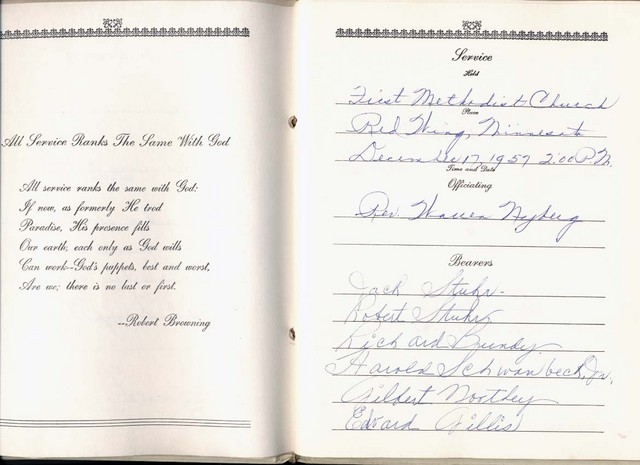 All Service Ranks The Same With God
All service ranks the same with God:
If now, as formerly He trod
Paradise, His presence fills
Our earth; each only as God wills
Can work--God's puppets, best and worst,
Are we; there is no last or first.
--Robert Browning
Service
Held
First Methodist Church
Place
Red Wing, Minnesota
December 17, 1957 2:00 P.M.
Time and Date
Officiating
Rev. Warren Nyberg
Bearers
Jack Stuhr
Robert Stuhr
Richard Bundy
Harold Schwanbeck, Jr.
Gilbert Northey
Edward Gillis